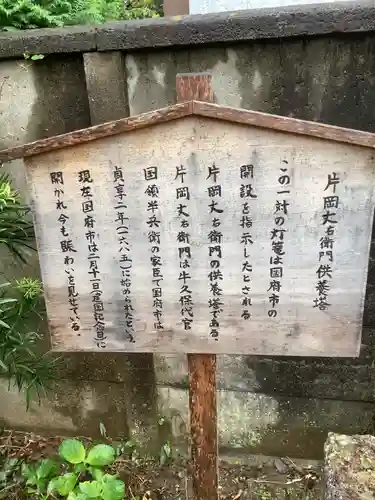 片岡丈右衛門供養塔
この一対の灯篭は国府市の
開設を指示したとされる
片岡丈右衛門の供養塔である。
片岡丈右衛門は牛久保代官
国領半兵衛の家臣で国府市は
貞享二年(一六八五)に始められたという。
現在国府市は二月十一日(建国記念日)に
開かれ今も賑わいを見せている。